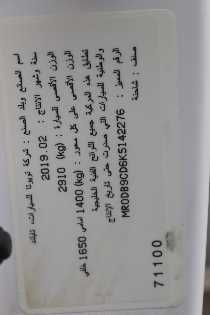 اسم الصانع وبلد الصنع : شركة تويوتا للسيارات، تايلاند
سنة وشهر الانتاج : 2019.02
الوزن الأقصى للسيارة : (kg) 2910
الوزن الأقصى على كل محور : (kg) 1400 أمامي 1650 خلفي
تطابق هذه المركبة جميع اللوائح الفنية الخليجية
والوطنية للسيارات التي صدرت حتى تاريخ الإنتاج
الرقم المميز : MR0DB9CD6K5142276
صنف : شاحنة
71100